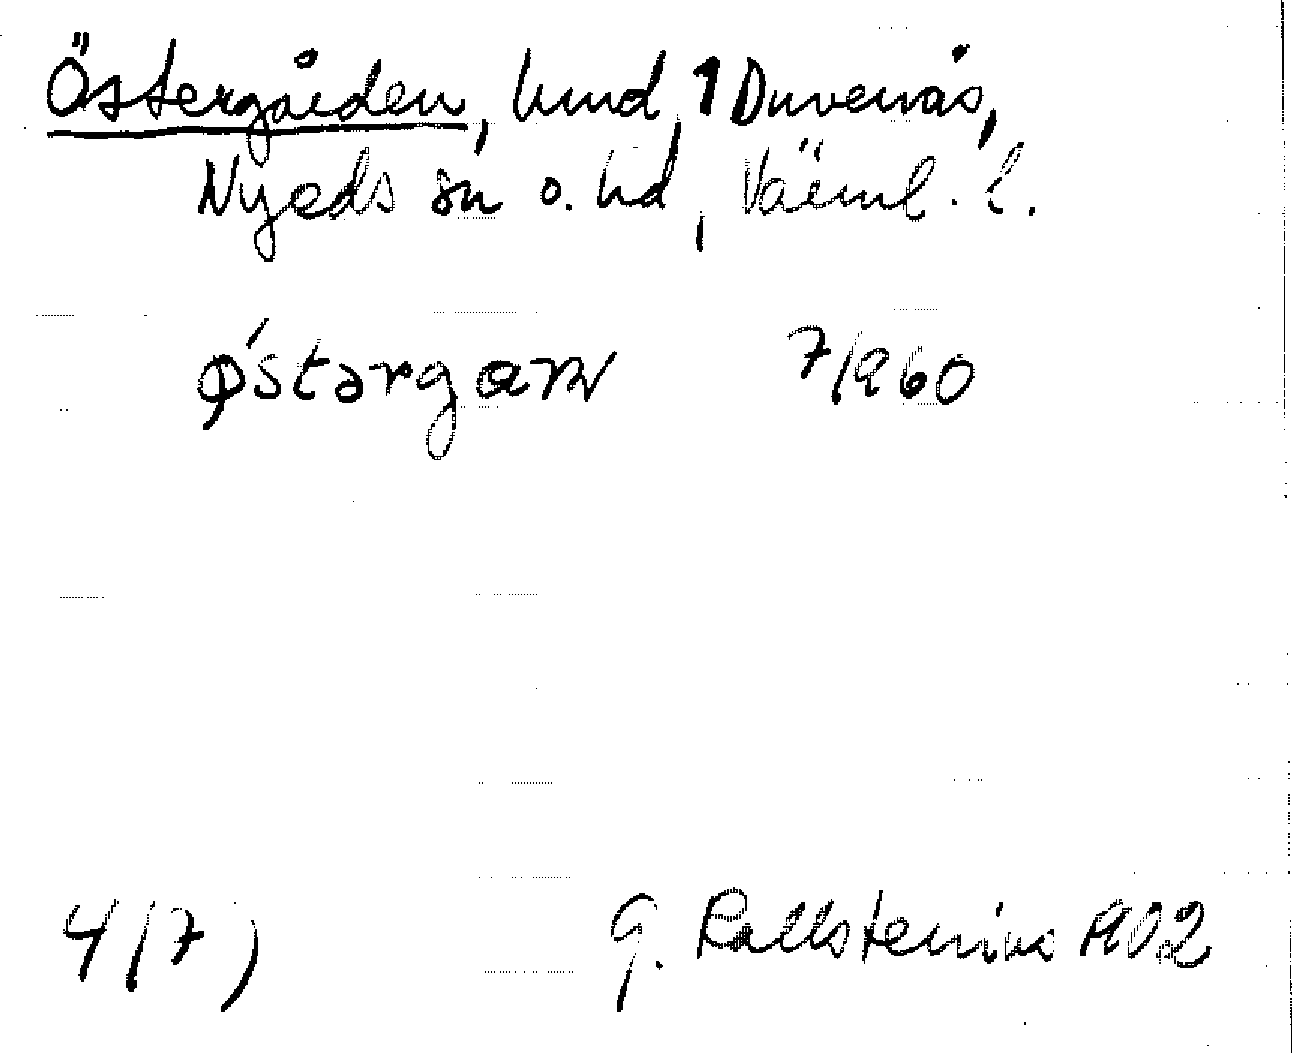 Östergården, hmd, 1 Duvenäs,
Nyeds sn o. hd, Värml. l.
ǿstərgaɳ 7/960
4/7) G. Kallstenius 1902